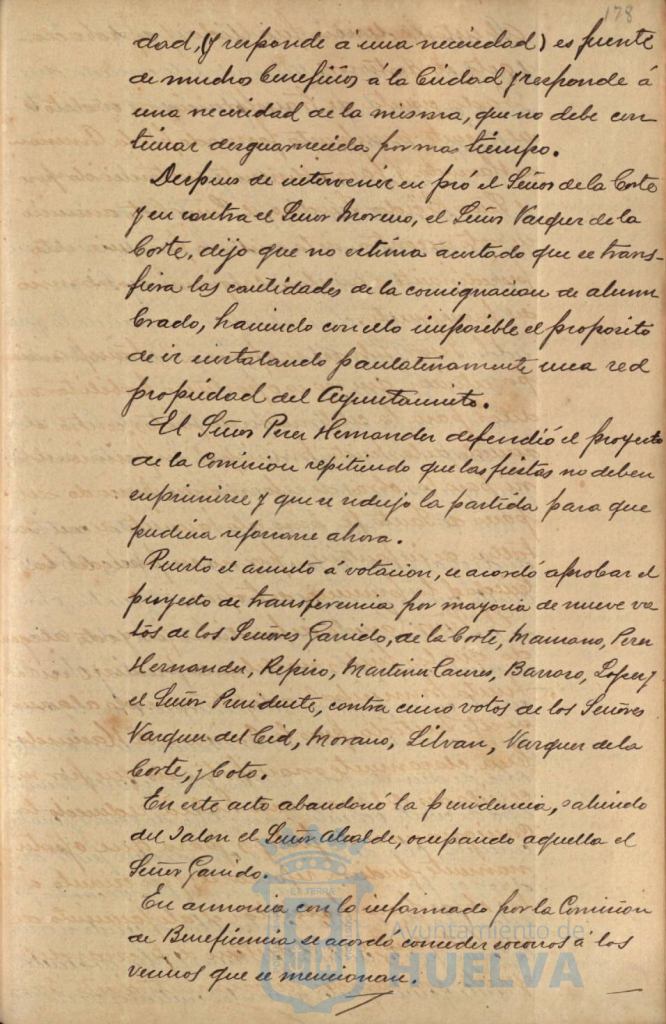 178
dad, (y responde á una neciedad) es fuente
de muchos beneficios á la Ciudad y responde á
una necesidad de la misma, que no debe con-
tinuar desguarnecida por mas tiempo.
Despues de intervenir en pró el Señor de la Corte
y en contra el Señor Moreno, el Señor Vazquez de la
Corte, dijo que no estima acertado que se trans-
fiera las cantidades de la consignacion de alum
brado, haciendo con ello imposible el proposito
de ir instalando paulatinamente una red
propiedad del Ayuntamiento.
El Señor Perez Hernandez defendió el proyecto
de la Comision repitiendo que las fiestas no deben
suprimirse y que se redujo la partida para que
pudiera reforzarse ahora.
Puesto el asunto á votacion, se acordó aprobar el
proyecto de transferencia por mayoria de nueve vo-
tos de los Señores Garrido, de la Corte, Mascaros, Perez
Hernandez, Repiso, Martinez Barroso, Lopez y
el Señor Presidente, contra cinco votos de los Señores
Vazquez del Cid, Morano, Silvan, Vazquez de la
Corte, y Coto.
En este acto abandonó la presidencia, saliendo
del Salon el Señor Alcalde, ocupando aquella el
Señor Garrido.
En armonia con lo informado por la Comision
de Beneficencia se acordó conceder socorros á los
vecinos que se mencionan.
Ayuntamiento de
HUELVA